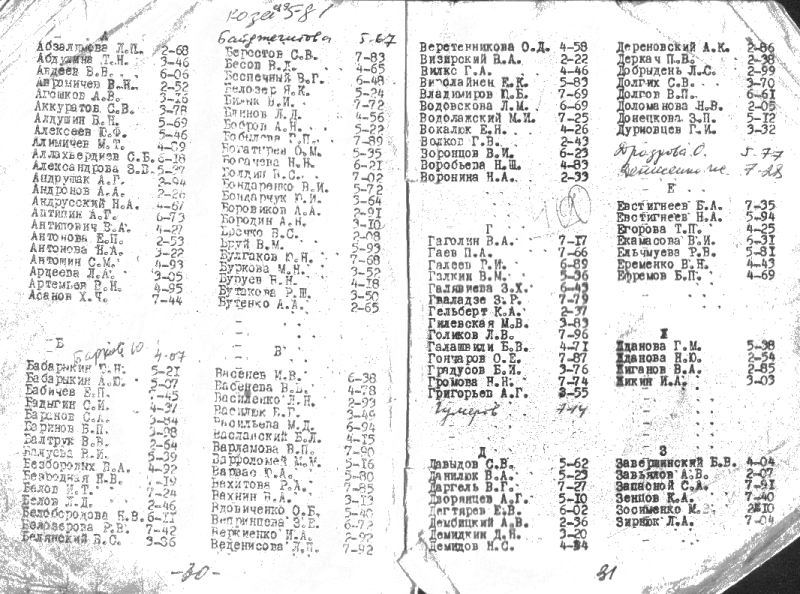 А
Абзалимова Л.П. 2-68
Абдушина Т.Н. 3-46
Авдеев В.В. 6-06
Авромичев В.Н. 2-52
Агошков А.В.
Аккуратов С.В. 5-78
Алдушин В.Н. 5-69
Алексеев Ю.Ф. 5-46
Алимичев М.Т. 4-09
Аллахьердиев С.Б. 6-18
Александрова З.В.
Андрушак А.Г. 2-94
Андронов А.А. 2-26
Андрусский Н.А. 4-67
Антипин А.Г. 6-73
Антипович В.А. 4-27
Антонова Е.П. 2-53
Антонова Н.А. 3-22
Антошин С.М. 4-93
Арцеева Л.А. 3-05
Артемьев В.Н. 4-95
Асанов Х.Ч. 7-44
Б
4-07
Бабарыкин В.Н. 5-21
Бабарыкин А.Ю. 5-07
Бабичев Е.П.
Бадыгин С.И. 4-31
Баранов С.А. 3-84
Баринов В.П.
Балтрук В.В. 2-64
5-39
Безбородых В.А. 4-92
Безродная Н.В.
Белов И.Т. 7-24
Белов Л.Д. 2-46
Белобородова Н.В. 6-11
Белозерова Р.В. 7-42
Белянский Б.С. 3-36
-30-
5-67
Берестов С.В. 7-83
Бесов В.Д. 4-65
Беспечный В.Г. 6-48
Белозер Я.К. 5-24
7-72
Блинов Л.Д. 4-56
Бобров А.Н. 5-22
7-89
Богатырев О.М. 5-35
Богачева Н.Н. 6-21
7-02
Бондаренко В.И. 5-72
Бондарчук Ю.И. 3-64
Боровиков А.А. 2-91
Бородин А.Н. 3-10
2-08
Бруй В.М. 5-99
Булгаков Ю.Н. 7-68
Буркова М.Н. 3-52
Буруев Н.Н. 4-18
Бутакова Р.Ш. 3-50
Бутенко А.А. 2-65
В
Васенев И.В. 6-38
Васенева В.В. 4-78
Василенко Л.Н. 2-93
Василюк Б.Г. 3-49
Васильева М.Д. 6-94
Васланский Б.Л. 4-15
Варламова В.П. 7-90
Варфоломей М.М. 5-16
Варвас Ю.А. 5-80
Вахитова Р.А. 7-85
Вахнин В.А. 3-13
Вдовиченко О.Б. 5-40
Веприцева З.Р. 6-72
Веркиенко И.А. 2-92
Веденисова Л.П. 7-92
Веретенникова О.Д. 4-58
Визирский В.А. 2-22
Вилкс Г.А. 4-46
Виролайнен Е.К. 5-83
Владимиров Ю.Б. 7-69
Водовскова Л.М. 6-69
Водолажский М.И. 7-25
Вокалюк Е.Н. 4-26
Волков Г.В. 2-43
Воронцов В.И. 6-23
Воробьева Н.Ш. 4-83
Воронина Н.А. 2-33
Г
Гаголин В.А. 7-17
Гаев П.А. 7-66
Галеев Р.И. 6-89
Галкин В.М. 5-36
Галявиева З.Х. 6-43
Гваладзе З.Р. 7-79
Гельберт К.А. 2-37
Гилевская М.В. 3-83
Голиков Л.В. 7-96
Галашвили Б.В. 4-71
Гончаров О.Е. 7-87
Градусов Б.И. 3-76
Громова Н.Н. 7-74
Григорьев А.Г. 3-55
Гумеров 7-14
Д
Давыдов С.В. 5-62
Данилюк В.А. 5-23
Даргель В.Г. 7-27
Дворянцев А.Г. 5-10
Дегтярев Е.В. 6-02
Дембицкий А.В. 2-36
Демидкин Д.Н. 3-20
Демидов Н.С. 4-34
Дереновский А.К. 2-86
Деркач П.В. 2-38
Добрыдень Л.С. 2-99
Долгих С.В. 3-70
Долгов В.П. 6-61
Доломанова Н.В. 2-05
Донецкова З.П. 5-12
Дурновцев Г.И. 3-32
Дроздова О. 5-77
7-28
Е
Евстигнеев Б.А. 7-35
Евстигнеев Н.А. 5-94
Егорова Т.П. 4-25
Екамасова В.И. 6-31
Ельчмуева Р.В. 5-81
Еременко В.Н. 4-43
Ефремов Б.П. 4-69
Ж
Жданова Г.М. 5-38
Жданова Н.Ю. 2-54
Жиганов В.А. 2-85
Жикин И.А. 3-03
З
Завершинский Б.В. 4-04
Завьялов А.В. 2-07
Запасной С.А. 7-91
Зенцов К.А. 7-40
Зосименко М. 2-10
Зирнюк Л.А. 7-04
31